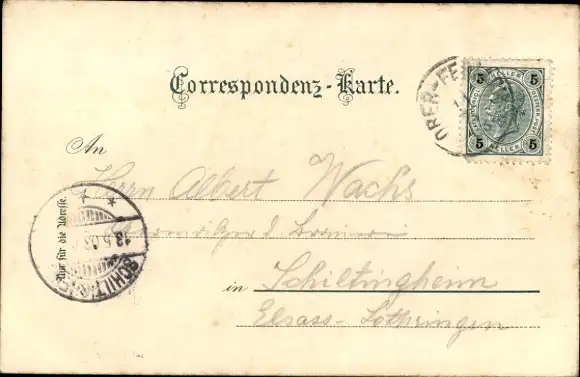 Correspondenz-Karte.
5 HELLER 5
5 HELLER 5
OBER-FE
An
Herrn Albert Wachs
Nur für die Adresse.
13.5.03
SCHILTI
in Schiltingheim
Elsass-Lothringen